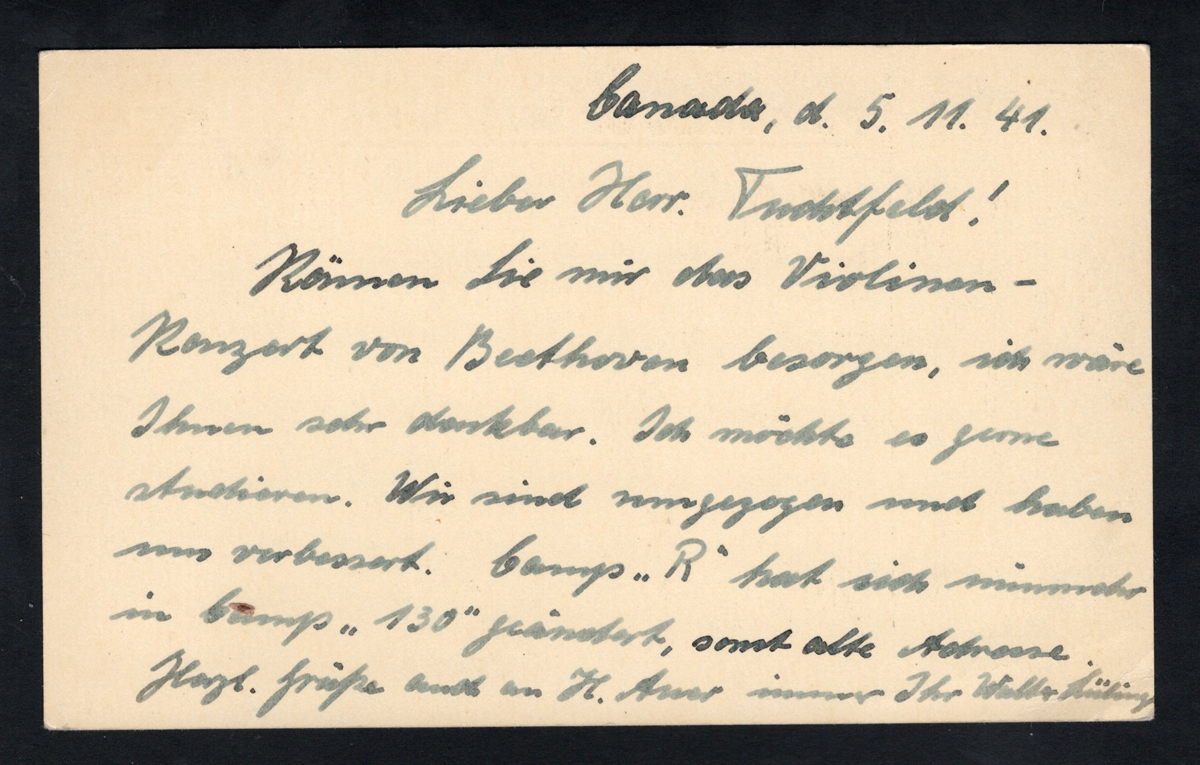 Canada, d. 5. 11. 41.
Lieber Herr. Tuchtfeld!
Können Sie mir das Violinen-
Konzert von Beethoven besorgen, ich wäre
Ihnen sehr dankbar. Ich möchte es gerne
studieren. Wir sind umgezogen und haben
uns verbessert. Camp „R“ hat sich nunmehr
in Camp „130“ geändert, sonst alte Adresse.
Herzl. Grüße auch an H. Auer immer Ihr Walter